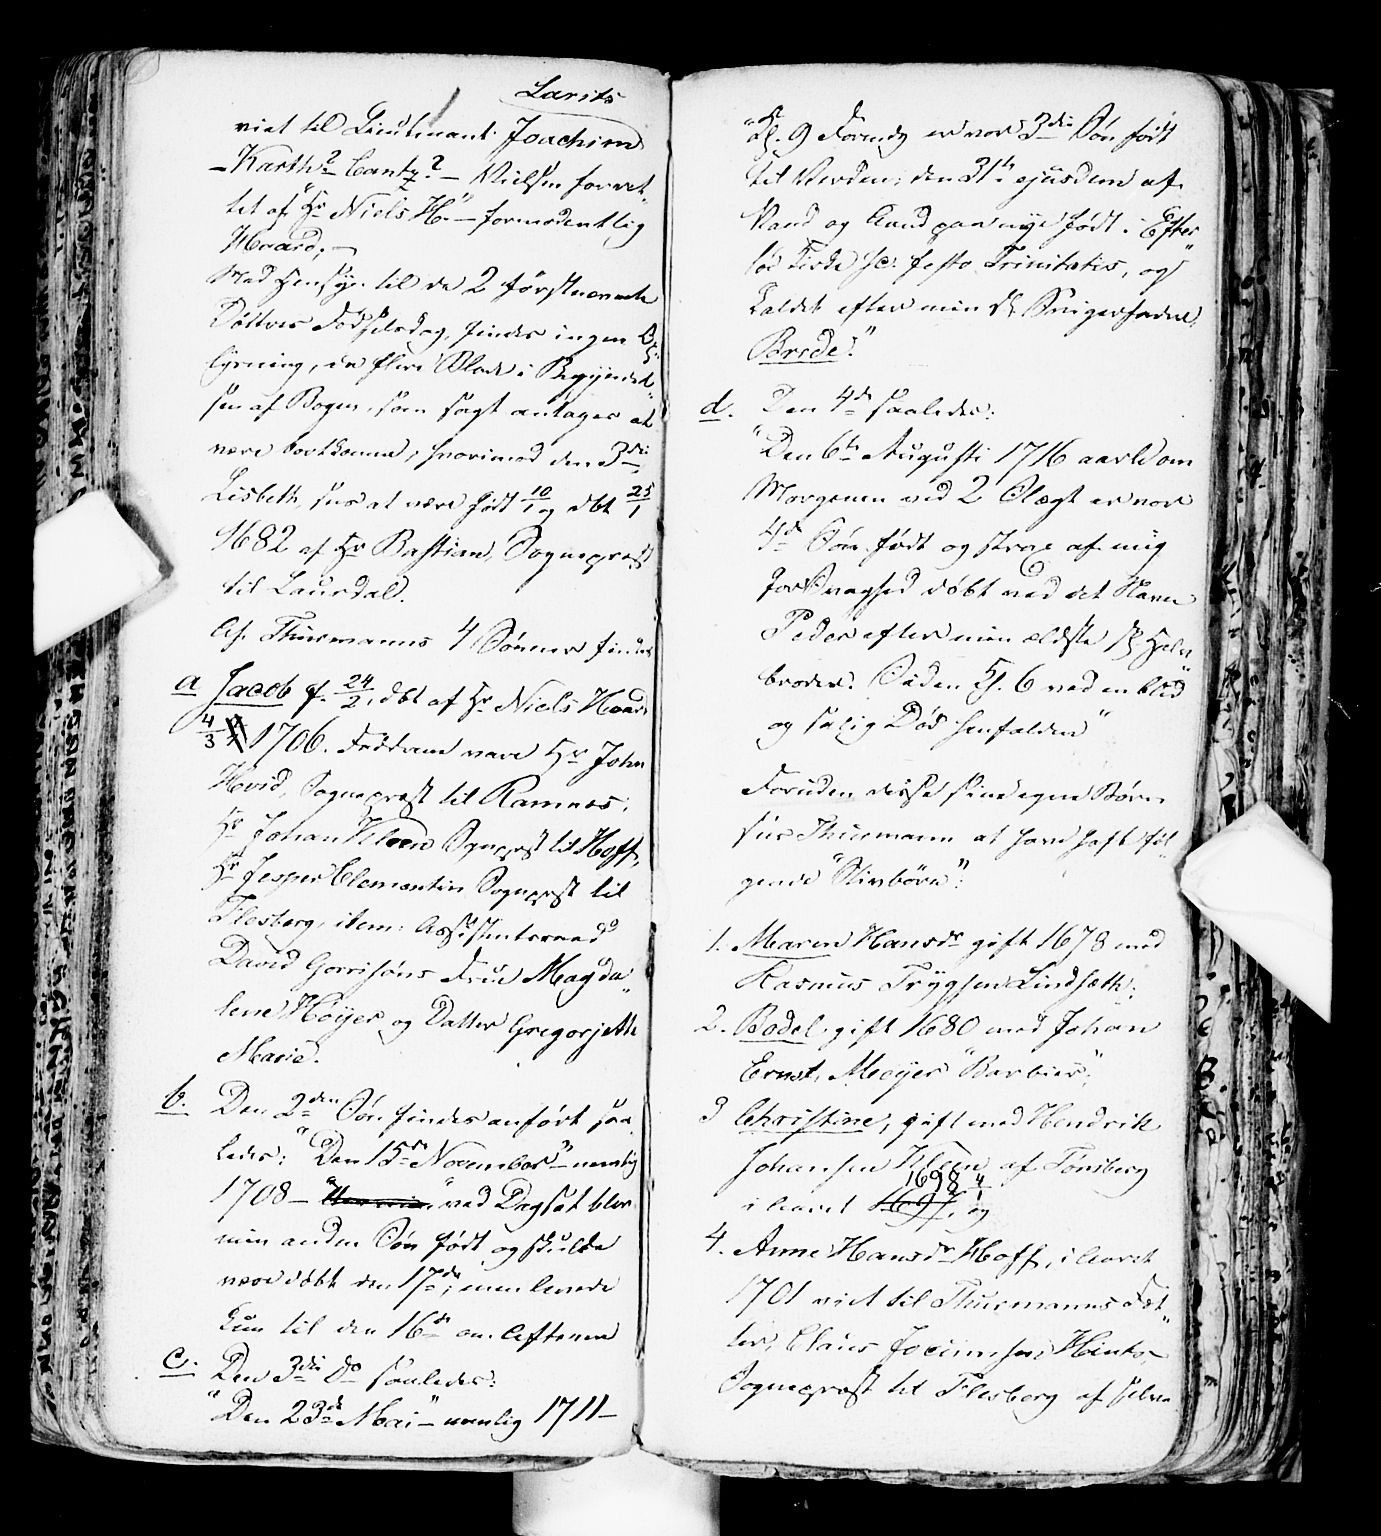 Larits
viet til Lieutenant Joachim
– Karth? Cantz? – Vielsen forret,,
tet af "Hr Niels H." – formodentlig
Hvard; –
Med Hensyn til de 2 førstnævnte
Døttres Fødselsdag, findes ingen Op,,
lysning, da flere Blade i Begyndel,,
sen af Bogen, som sagt antages at
være bortkomne, hvorimod den 3die
Lisbeth, siges at være født 10/1 og dbt 25/1
1682 af Hr Bastian, Sogneprest
til Laurdal.
Af Thurmanns 4 Sønner findes
a Jacob f. 24/2, dbt af Hr Niels Hvard
4/3 1706. Fadderne vare Hr John
Hvid, Sogneprest til Ramnes,
Hr Johan Kleen Sognprst til Hoff,
Hr Jesper Clementin Sognprst til
Flesberg, item: Assistentsraad
David Gorrisöns Frue Magda,,
lene Höyer og Datter Gregorjette
Marie.
b. Den 2den Søn findes anført saa
ledes: "Den 15de November" – nemlig
1708 – "ved Dagsat blev
min anden Søn født og skulde
være døbt den 17de, men levede
kun til den 16de om Aftenen
c. Den 3die Do saaledes:
"Den 23de Mai" – nemlig 1711 –
"Kl. 9 Formdg er vor 3die Søn født
til Verden; den 31te ejusdem af
Vand og Aand paa nye født. Efter
lød Tiede sc: festo Trinitatis, og
kaldet efter min sl. Svigerfader,
Brede."
d. Den 4de saaledes:
"Den 6te Augusti 1716 aarle om
Morgenen ved 2 Slægt er vor
4de Søn født og strax af mig
for Svaghed døbt ved det Navn
Peder efter min ældste sl. Halv,,
broder. Siden Kl. 6 ved en blid
og salig Død henfalden"
Foruden disse sine egne Børn
siges Thurmann at have haft føl,,
gende "Stivbørn":
1. Maren Hansdr gift 1678 med
Rasmus Trygsen Lindsæth;
2. Bodel gift 1680 med Johan
Ernst, Meyer "Barbier";
3 Christine, gift med Hendrik
Johansen Kleen af Tønsberg
i Aaret 1697, 1698 4/1 og
4. Anne Hansdr Hoff, i Aaret
1701 viet til Thurmanns Fæt,,
ter, Claus Jocumsen Hints,
Sogneprest til Flesberg af selve